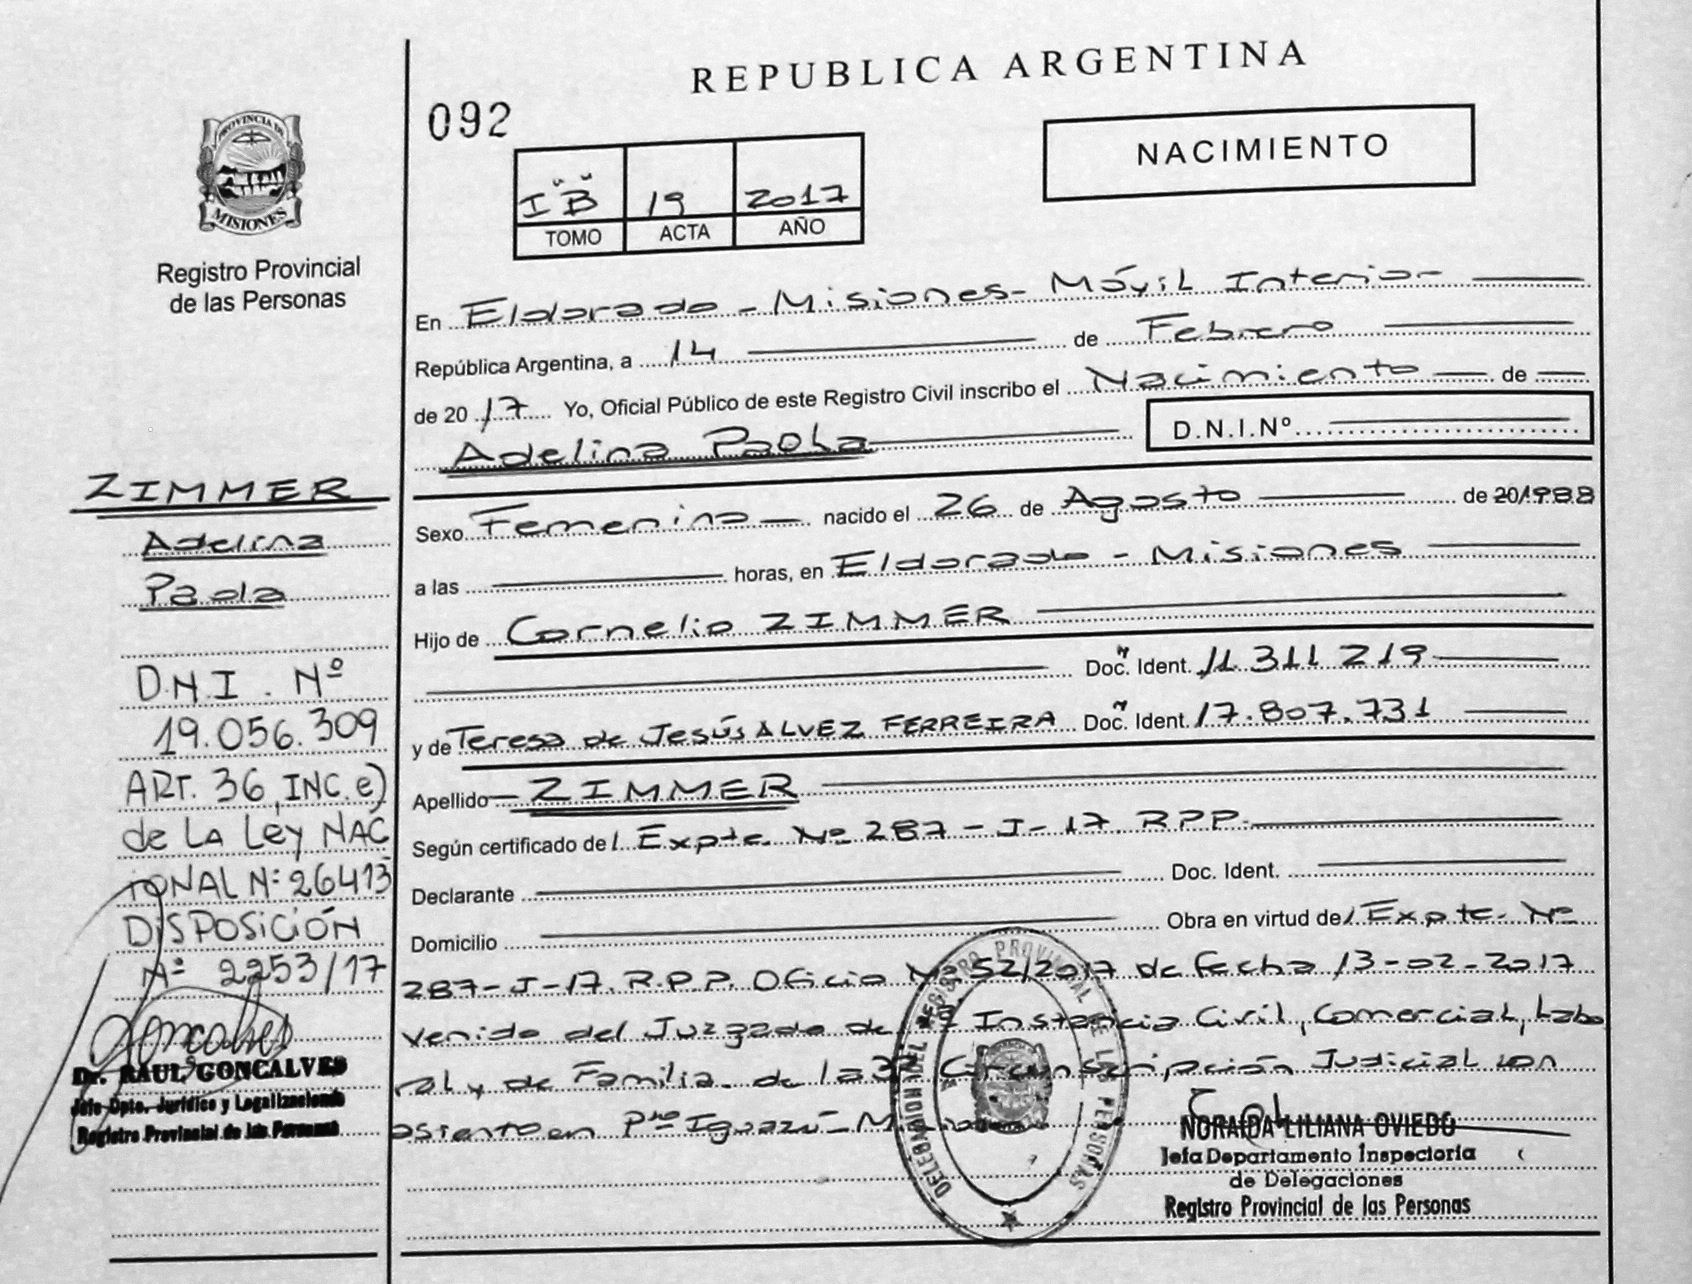 REPUBLICA ARGENTINA
092
NACIMIENTO
I "B" 19 2017
TOMO ACTA AÑO
PROVINCIA DE
MISIONES
Registro Provincial
de las Personas
En Eldorado - Misiones - Móvil Interior
República Argentina, a 14 de Febrero
de 2017 Yo, Oficial Público de este Registro Civil inscribo el Nacimiento de
Adelina Paola
D.N.I.Nº
Sexo Femenino nacido el 26 de Agosto de 201988
a las horas, en Eldorado - Misiones
Hijo de Cornelio ZIMMER
Doc. Ident. 11.311.219
y de Teresa de Jesús ALVEZ FERREIRA Doc. Ident. 17.807.731
Apellido ZIMMER
Según certificado del Expte. Nº 287-I-17. R.P.P.
Declarante Doc. Ident.
Domicilio Obra en virtud del Expte. Nº
287-I-17. R.P.P. Oficio Nº 52/2017 de fecha 13-02-2017
venido del Juzgado de 1º Instancia Civil, Comercial, Labo
ral y de Familia de la 3º Circunscripción Judicial con
asiento en Pto Iguazú - Misiones
DELEGACION DEL REGISTRO PROVINCIAL DE LAS PERSONAS
NORAIDA LILIANA OVIEDO
Jefa Departamento Inspectoria
de Delegaciones
Registro Provincial de las Personas
ZIMMER
Adelina
Paola
D.N.I. Nº
19.056.309
ART. 36, INC. e)
de LA Ley NAC
IONAL Nº 26413
DISPOSICIÓN
Nº 2253/17
Goncalves
Dr. RAUL GONCALVES
Jefe Dpto. Jurídico y Legalizaciones
Registro Provincial de las Personas